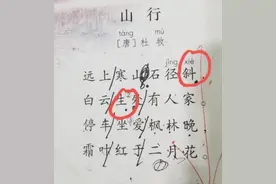 山行
táng mù
[唐]杜牧
jìng xié
远上寒山石径斜
白云生处有人家
停车坐爱枫林晚
霜叶红于二月花